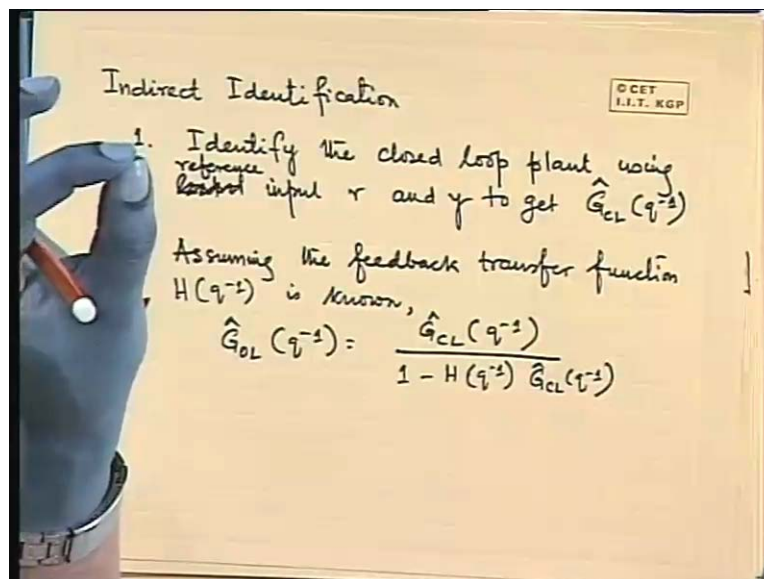 Indirect Identification
© CET
I.I.T. KGP
1. Identify the closed loop plant using
reference
input r and y to get Ĝ_CL (q⁻¹)
Assuming the feedback transfer function
H(q⁻¹) is known,
Ĝ_OL (q⁻¹) = Ĝ_CL (q⁻¹) / 1 - H(q⁻¹) Ĝ_CL (q⁻¹)